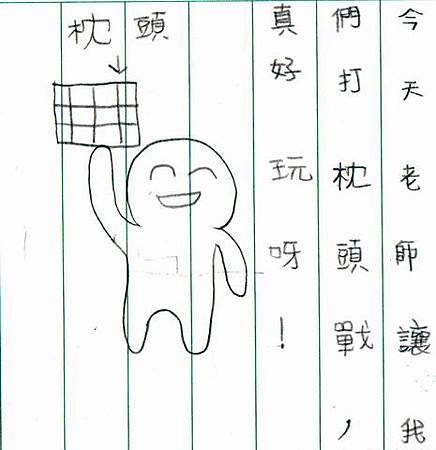 今天老師讓我
們打枕頭戰，
真好玩呀！
枕頭